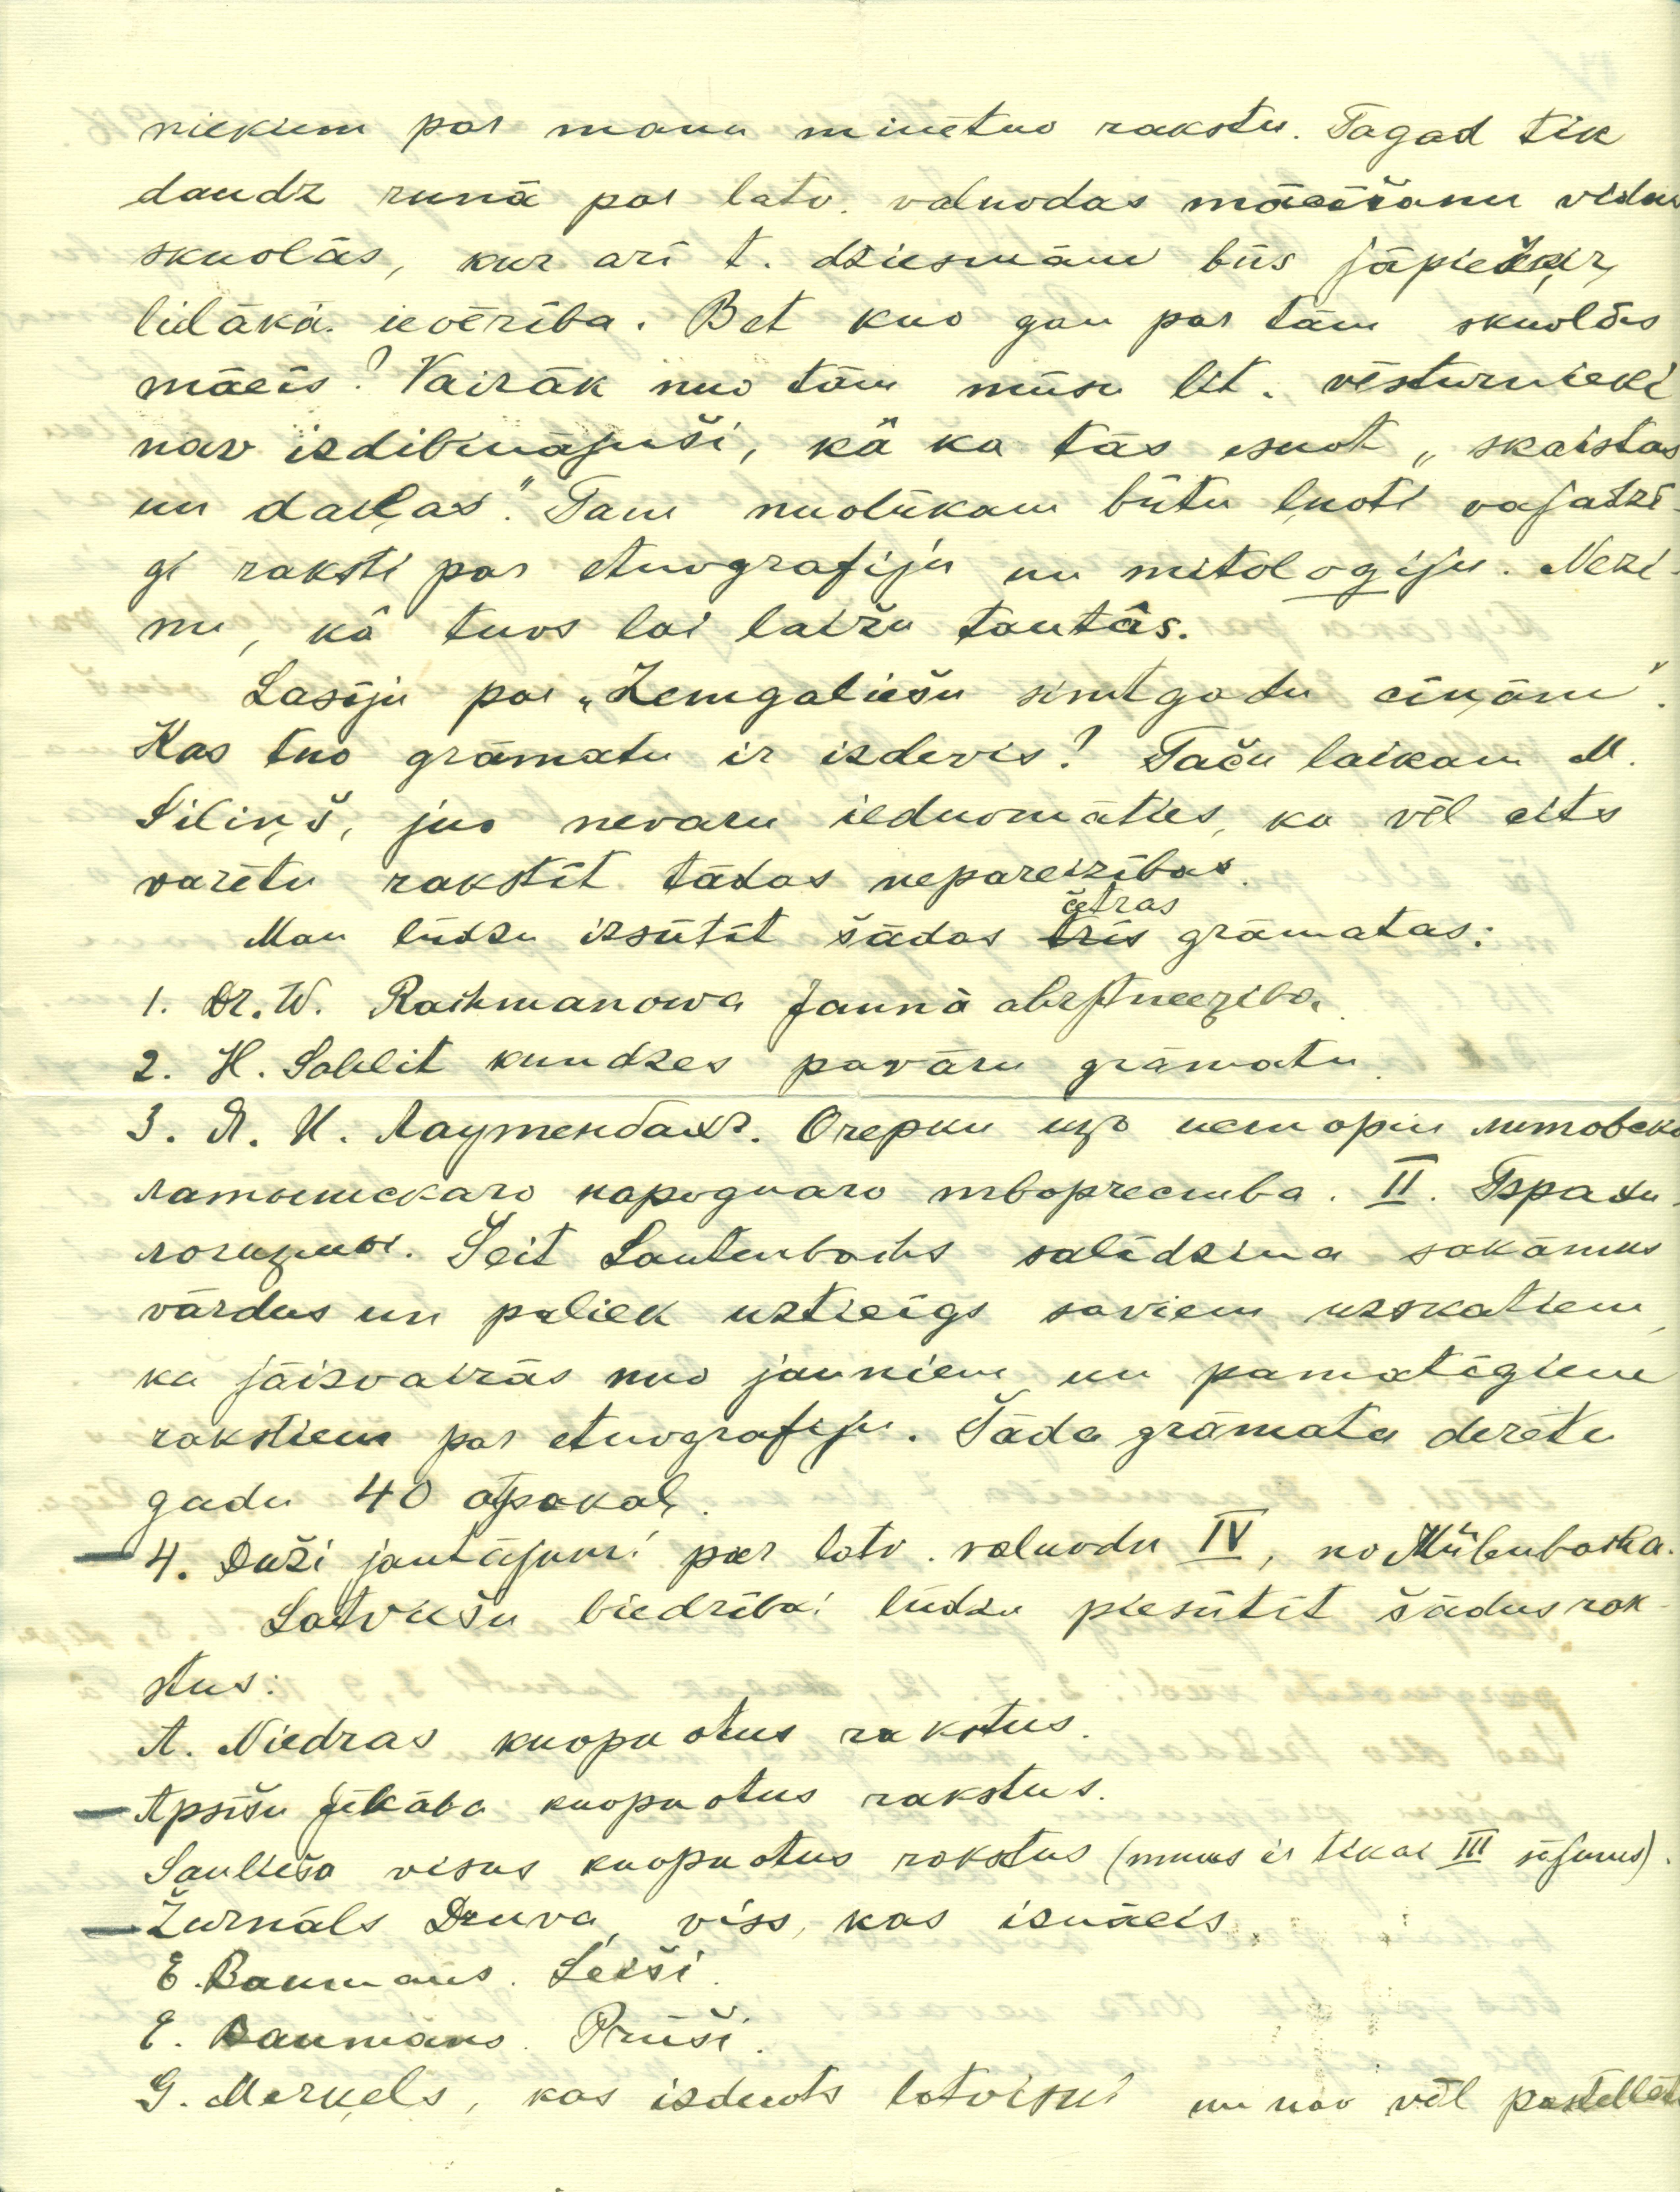 niekiem par manu minētuo rakstu. Tagad tik
daudz runā par latv. valuodas mācīšanu vidus
skuolās, kur arī t. dziesmām būs jāpiešķir
lielāka ievērība. Bet kuo gan par tām skuolās
mācīs? Vairāk nuo tām mūsu lit. vēsturnieki
nav izdibinājuši, kā ka tās esuot „skaistas
un daiļas". Tam nuolūkam būtu ļuoti vajadzī-
gi raksti par etnografiju un mitologiju. Nezi-
nu, kā tuos lai laižu tautās.
Lasīju par „Zemgaliešu simtgadu cīņām".
Kas tuo grāmatu ir izdevis? Taču laikam M.
Siliņš, juo nevaru ieduomāties, ka vēl cits
varētu rakstīt tādas nepareizības.
četras
Man lūdzu izsūtīt šādas tris grāmatas:
1. Dr. W. Rachmanowa Jaunā ahrstneeziba.
2. H. Sahlit kundzes pavāru grāmatu.
3. Я. И. Лаутенбахъ. Очерки изъ исторiи литовско
латышскаго народнаго творчества. II. Пара
логизмы. Šeit Lautenbachs salīdzina sakāmus
vārdus un paliek uzticīgs saviem uzskatiem,
ka jāizvairās nuo jauniem un pamatīgiem
rakstiem par etnografiju. Šāda grāmata derētu
gadu 40 atpakaļ.
4. Daži jautājumi par latv. valuodu IV, no Mülenbacha.
Latviešu biedrībai lūdzu piesūtīt šādus rak-
stus:
A. Niedras kuopuotus rakstus.
Apsīšu Jēkaba kuopuotus rakstus.
Saulieša visus kuopuotus rakstus (mums ir tikai III sējums).
Žurnāls Druva, viss, kas iznācis.
E. Baumans. Leiši.
E. Baumans. Prūši.
G. Merķels, kas izduots latviski un nav vēl pastellēts